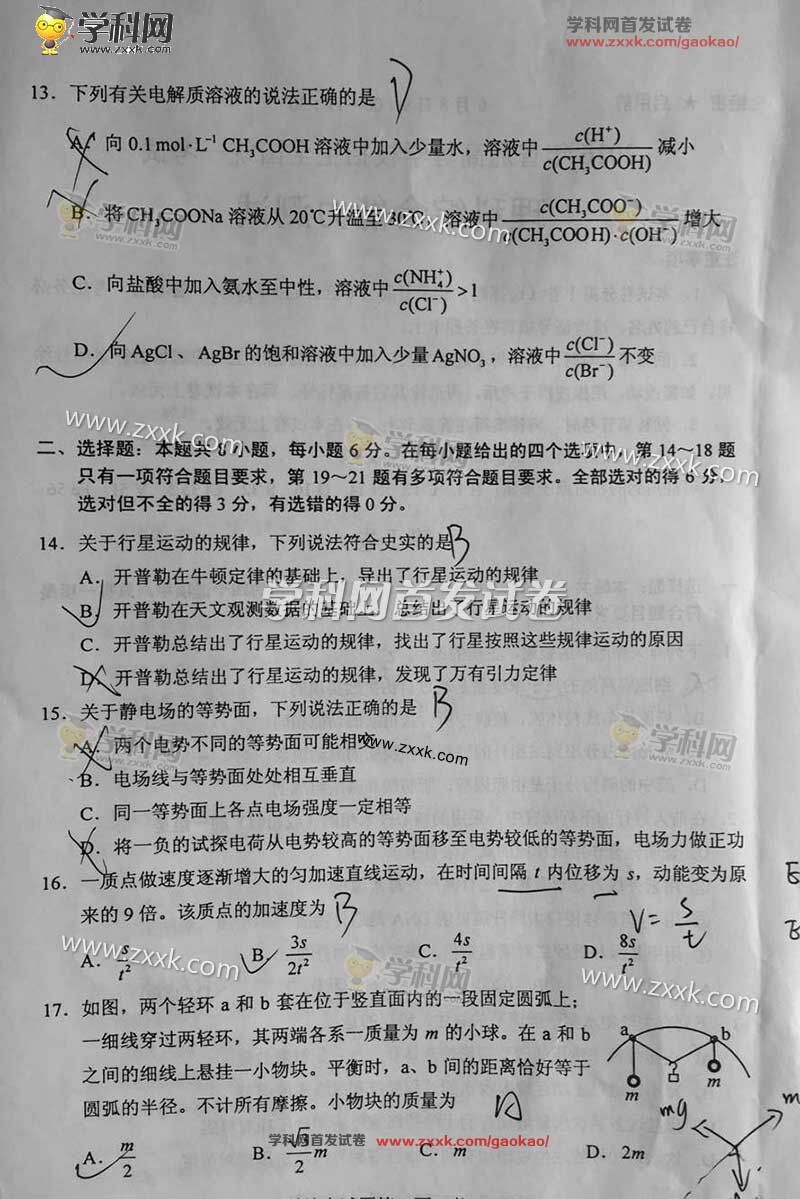 学科网
www.zxxk.com
学科网首发试卷
www.zxxk.com/gaokao/
13. 下列有关电解质溶液的说法正确的是 D
A. 向 0.1 mol·L⁻¹ CH₃COOH 溶液中加入少量水,溶液中 c(H⁺)/c(CH₃COOH) 减小
B. 将CH₃COONa 溶液从 20℃升温至 30℃,溶液中 c(CH₃COO⁻)/c(CH₃COOH)·c(OH⁻) 增大
C. 向盐酸中加入氨水至中性,溶液中 c(NH₄⁺)/c(Cl⁻) >1
D. 向 AgCl、AgBr 的饱和溶液中加入少量 AgNO₃,溶液中 c(Cl⁻)/c(Br⁻) 不变
二、选择题:本题共 8 小题,每小题 6 分。在每小题给出的四个选项中,第 14~18 题
只有一项符合题目要求,第 19~21 题有多项符合题目要求。全部选对的得 6 分,
选对但不全的得 3 分,有选错的得 0 分。
14. 关于行星运动的规律,下列说法符合史实的是 B
A. 开普勒在牛顿定律的基础上,导出了行星运动的规律
B. 开普勒在天文观测数据的基础上,总结出了行星运动的规律
C. 开普勒总结出了行星运动的规律,找出了行星按照这些规律运动的原因
D. 开普勒总结出了行星运动的规律,发现了万有引力定律
15. 关于静电场的等势面,下列说法正确的是 B
A. 两个电势不同的等势面可能相交
B. 电场线与等势面处处相互垂直
C. 同一等势面上各点电场强度一定相等
D. 将一负的试探电荷从电势较高的等势面移至电势较低的等势面,电场力做正功
16. 一质点做速度逐渐增大的匀加速直线运动,在时间间隔 t 内位移为 s,动能变为原
来的 9 倍。该质点的加速度为 B
V = s/t
A. s/t² B. 3s/2t² C. 4s/t² D. 8s/t²
17. 如图,两个轻环 a 和 b 套在位于竖直面内的一段固定圆弧上;
一细线穿过两轻环,其两端各系一质量为 m 的小球。在 a 和 b
之间的细线上悬挂一小物块。平衡时,a、b 间的距离恰好等于
圆弧的半径。不计所有摩擦。小物块的质量为 A
a b
m m
mg
A. m/2 B. √3/2 m C. m D. 2m
学科网首发试卷 www.zxxk.com/gaokao/